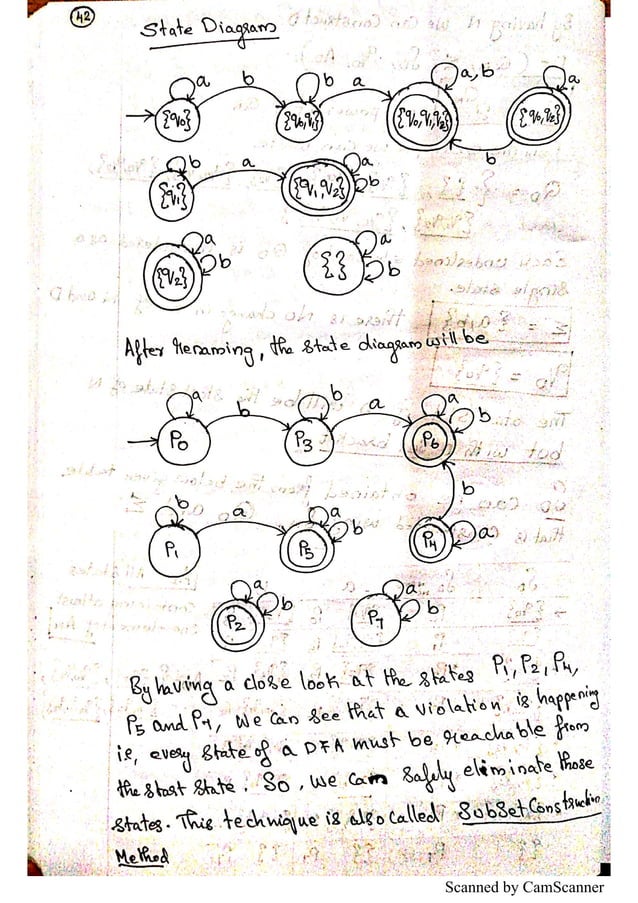 42
State Diagram
a b b a a,b a
{q0} {q0,q1} {q0,q1,q2} {q0,q2}
b
b a a
{q1} {q1,q2} b
a a
{q2} b { } b
After renaming, the state diagram will be
a b b a a b
P0 P3 P6
b
b a a b a
P1 P5 P4
a b a b
P2 P7
By having a close look at the states P1, P2, P4,
P5 and P4, we can see that a violation is happening
i.e, every state of a DFA must be reachable from
the start state. So, we can safely eliminate those
states. This technique is also called SubSet Construction
Method
Scanned by CamScanner